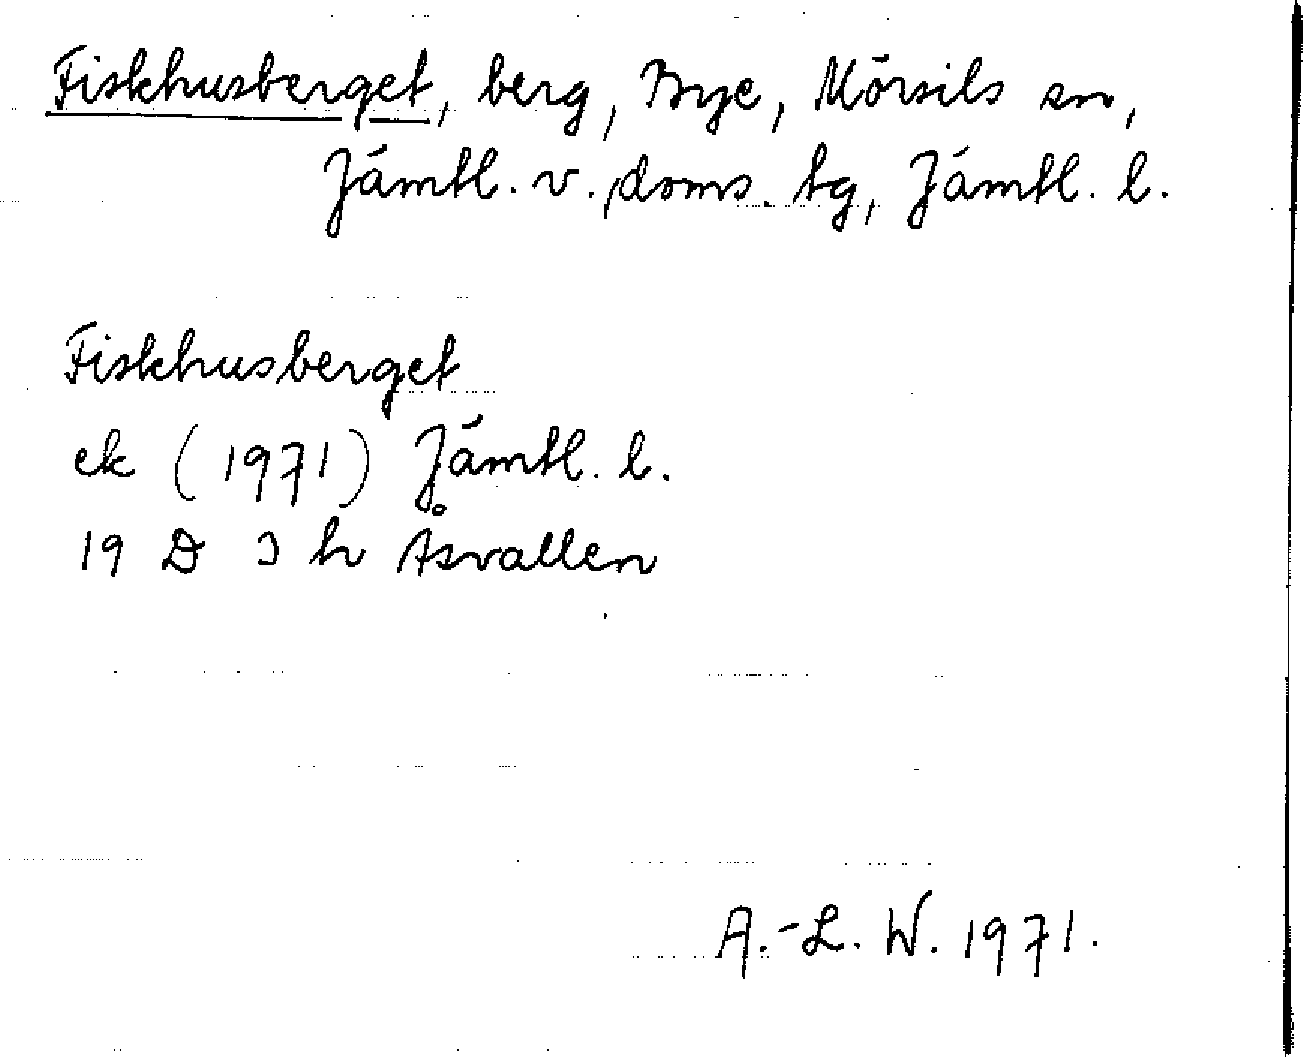 Fiskhusberget, berg, Bye, Mörsils sn,
Jämtl. v. doms. tg, Jämtl. l.
Fiskhusberget
ek (1971) Jämtl. l.
19 D 3 h Åsvallen
A.-L. W. 1971.